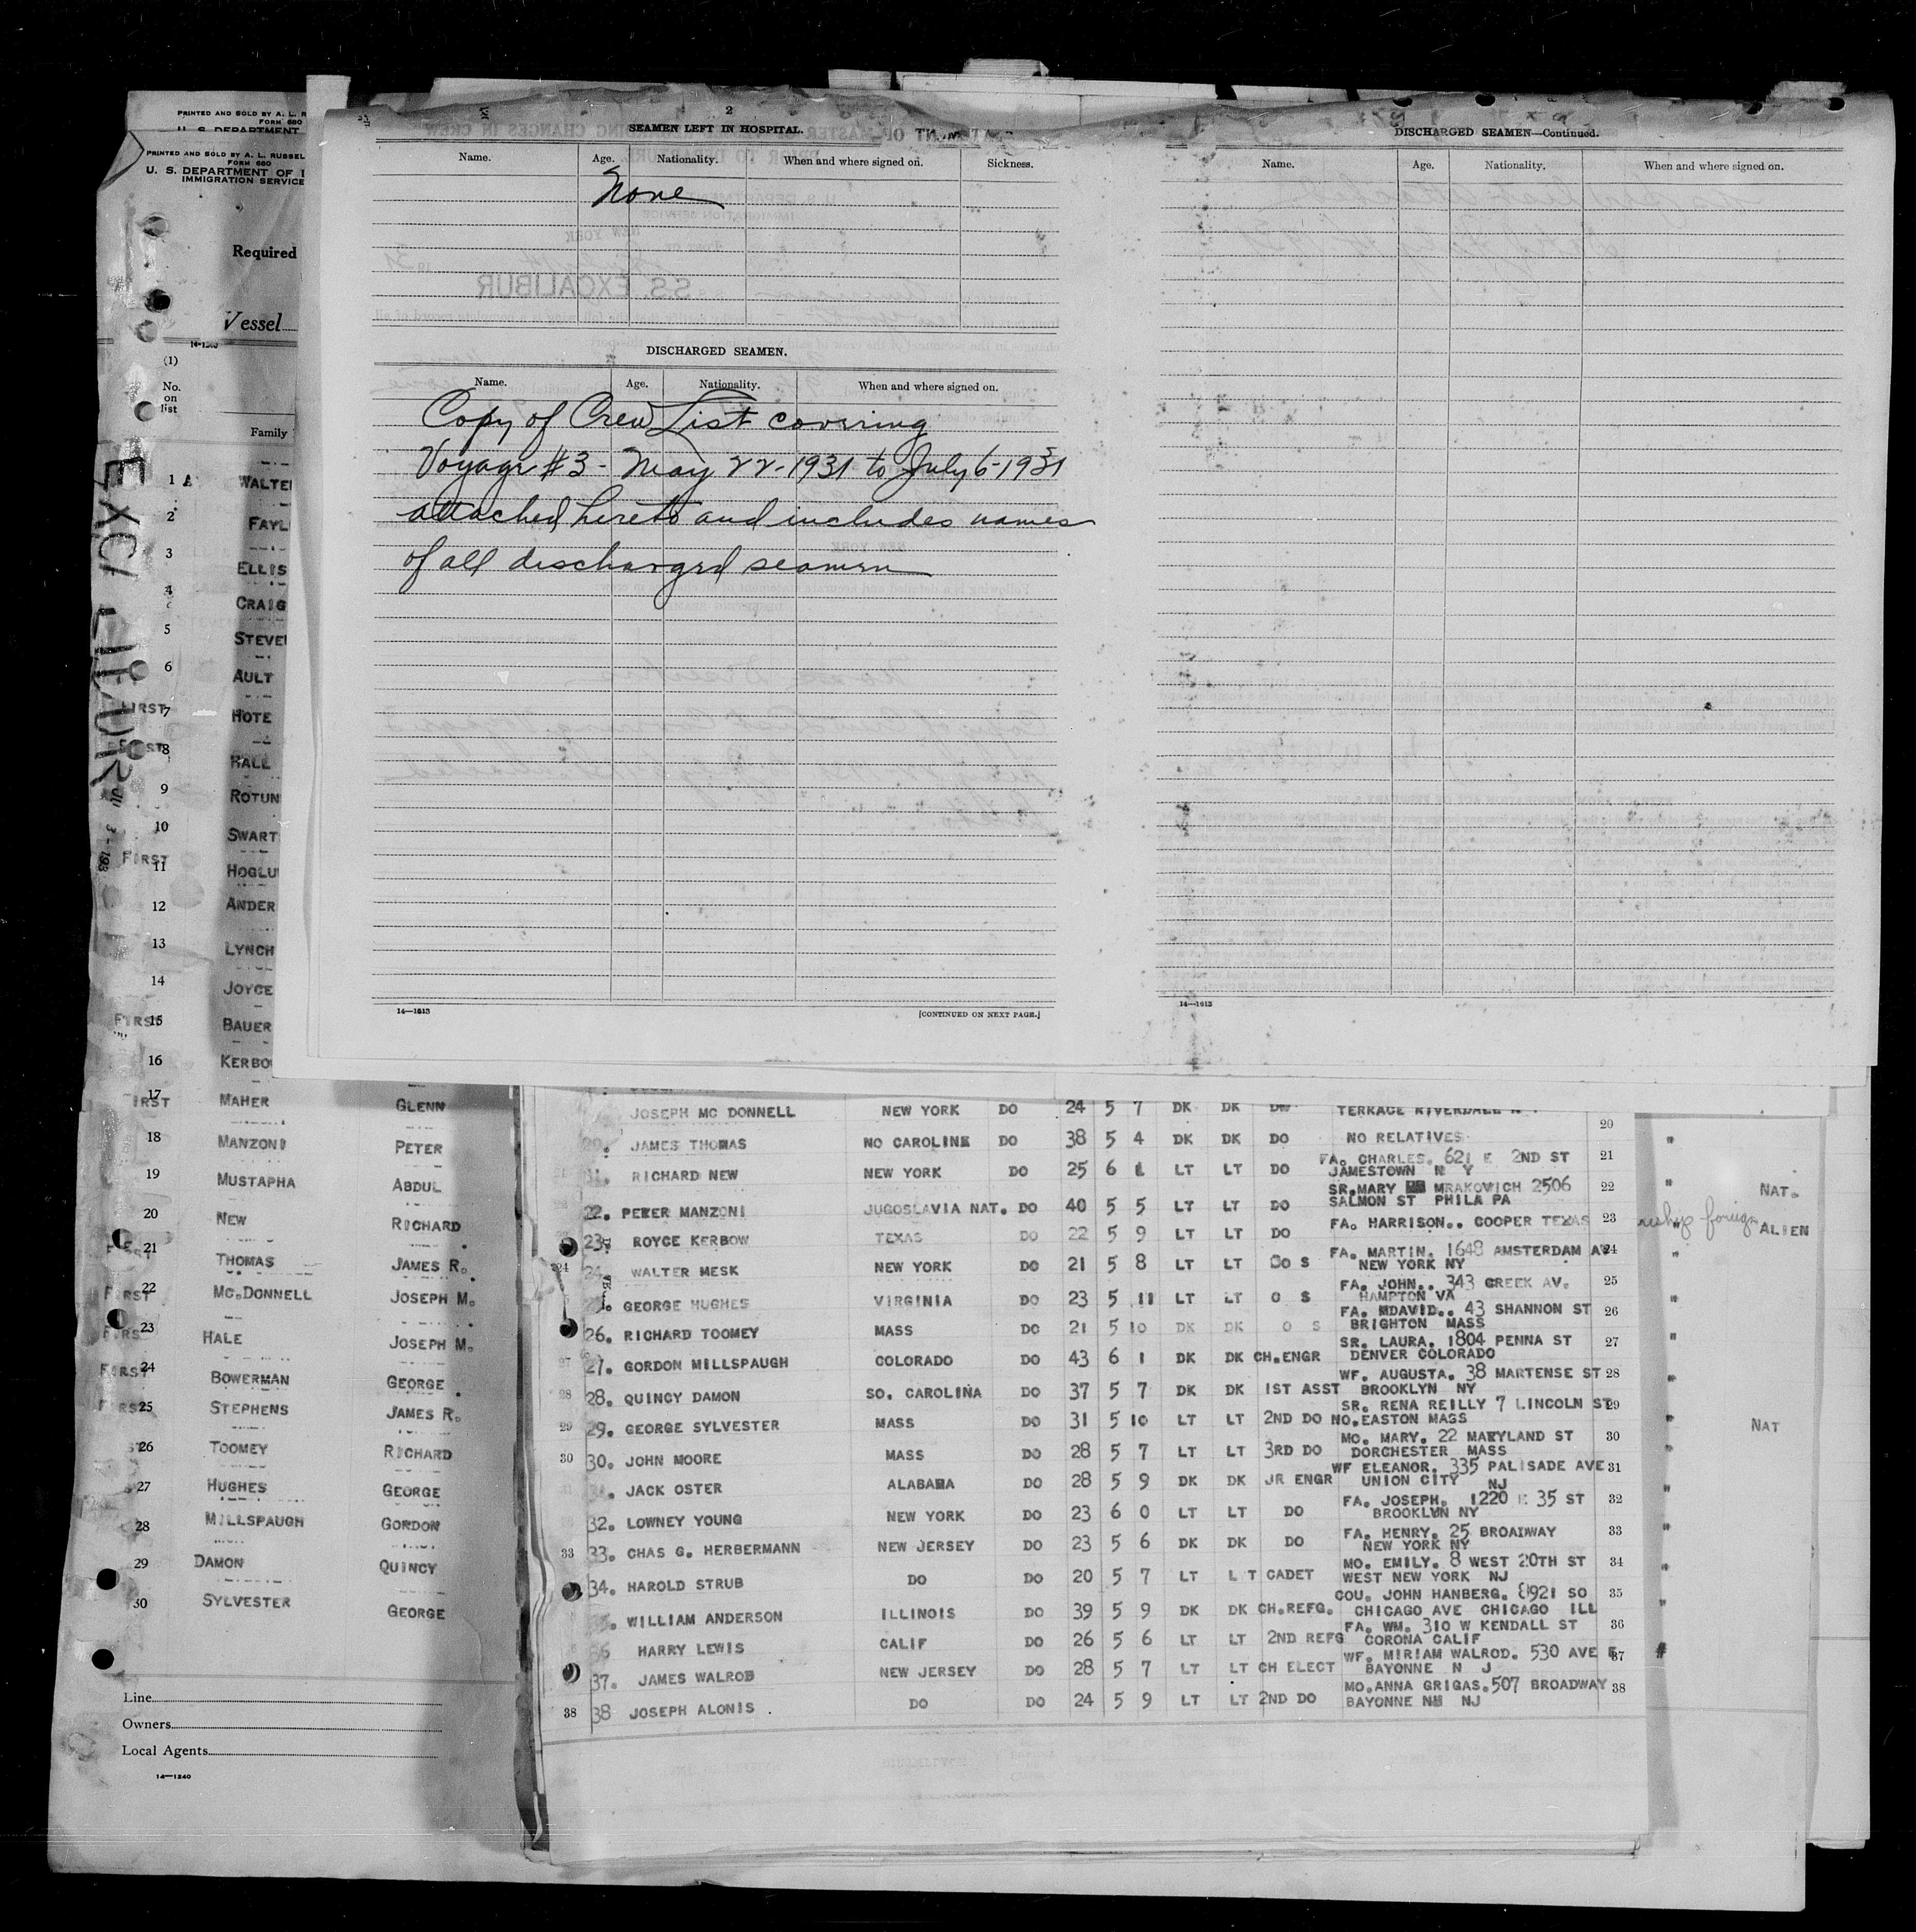 PRINTED AND SOLD BY A. L. R
FORM 680
U. S. DEPARTMENT
PRINTED AND SOLD BY A. L. RUSSEL
FORM 680
U. S. DEPARTMENT OF
IMMIGRATION SERVICE
Required
Vessel
14-1240
(1)
No.
on
list
Family
EXCALIBUR
1 A WALTE
2 FAYL
3 ELLIS
4 CRAIG
5 STEVE
6 AULT
FIRST 7 HOTE
8 HALL
9 ROTUN
10 SWART
FIRST 11 HOGLU
12 ANDER
13 LYNCH
14 JOYCE
FIRST 15 BAUER
16 KERBO
17 MAHER GLENN
18 MANZONI PETER
19 MUSTAPHA ABDUL
20 NEW RICHARD
21 THOMAS JAMES R.
22 MC.DONNELL JOSEPH M.
23 HALE JOSEPH M.
24 BOWERMAN GEORGE
25 STEPHENS JAMES R.
26 TOOMEY RICHARD
27 HUGHES GEORGE
28 MILLSPAUGH GORDON
29 DAMON QUINCY
30 SYLVESTER GEORGE
Line
Owners
Local Agents
14—1240
2
SEAMEN LEFT IN HOSPITAL.
Name. Age. Nationality. When and where signed on. Sickness.
None
S.S. EXCALIBUR
DISCHARGED SEAMEN.
Name. Age. Nationality. When and where signed on.
Copy of Crew List covering
Voyage #3 - May 22 - 1931 to July 6 - 1931
attached hereto and includes names
of all discharged seamen
14—1613
[CONTINUED ON NEXT PAGE.]
DISCHARGED SEAMEN—Continued.
Name. Age. Nationality. When and where signed on.
14—1613
JOSEPH MC DONNELL NEW YORK DO 24 5 7 DK DK TERRACE RIVERDALE 20
JAMES THOMAS NO CAROLINE DO 38 5 4 DK DK DO NO RELATIVES 21
RICHARD NEW NEW YORK DO 25 6 1 LT LT DO FA. CHARLES. 621 E 2ND ST JAMESTOWN N Y 22
22. PETER MANZONI JUGOSLAVIA NAT. DO 40 5 5 LT LT DO SR.MARY MRAKOVICH 2506 SALMON ST PHILA PA 23 NAT.
23. ROYCE KERBOW TEXAS DO 22 5 9 LT LT DO FA. HARRISON.. COOPER TEXAS foreign ALIEN
24 24. WALTER MESK NEW YORK DO 21 5 8 LT LT O S FA. MARTIN. 1648 AMSTERDAM AV NEW YORK NY 24
GEORGE HUGHES VIRGINIA DO 23 5 11 LT LT O S FA. JOHN.. 343 CREEK AV. HAMPTON VA 25
26. RICHARD TOOMEY MASS DO 21 5 10 DK DK O S FA. MDAVID.. 43 SHANNON ST BRIGHTON MASS 26
27 27. GORDON MILLSPAUGH COLORADO DO 43 6 1 DK DK CH.ENGR SR. LAURA. 1804 PENNA ST DENVER COLORADO 27
28 28. QUINCY DAMON SO. CAROLINA DO 37 5 7 DK DK 1ST ASST WF. AUGUSTA. 38 MARTENSE ST BROOKLYN NY 28
29 29. GEORGE SYLVESTER MASS DO 31 5 10 LT LT 2ND DO SR. RENA REILLY 7 LINCOLN ST NO.EASTON MASS 29 NAT
30 30. JOHN MOORE MASS DO 28 5 7 LT LT 3RD DO MO. MARY. 22 MARYLAND ST DORCHESTER MASS 30
JACK OSTER ALABAMA DO 28 5 9 DK DK JR ENGR WF ELEANOR. 335 PALISADE AVE UNION CITY NJ 31
32. LOWNEY YOUNG NEW YORK DO 23 6 0 LT LT DO FA. JOSEPH. 1220 E 35 ST BROOKLYN NY 32
33 33. CHAS G. HERBERMANN NEW JERSEY DO 23 5 6 DK DK DO FA. HENRY. 25 BROADWAY NEW YORK NY 33
34. HAROLD STRUB DO DO 20 5 7 LT L T CADET MO. EMILY. 8 WEST 20TH ST WEST NEW YORK NJ 34
WILLIAM ANDERSON ILLINOIS DO 39 5 9 DK DK CH.REFG. COU. JOHN HANBERG. 8921 SO CHICAGO AVE CHICAGO ILL 35
HARRY LEWIS CALIF DO 26 5 6 LT LT 2ND REFG FA. WM. 310 W KENDALL ST CORONA CALIF 36
37. JAMES WALROD NEW JERSEY DO 28 5 7 LT LT CH ELECT WF. MIRIAM WALROD. 530 AVE E BAYONNE N J 37
38 38 JOSEPH ALONIS DO DO 24 5 9 LT LT 2ND DO MO.ANNA GRIGAS.507 BROADWAY BAYONNE NJ 38